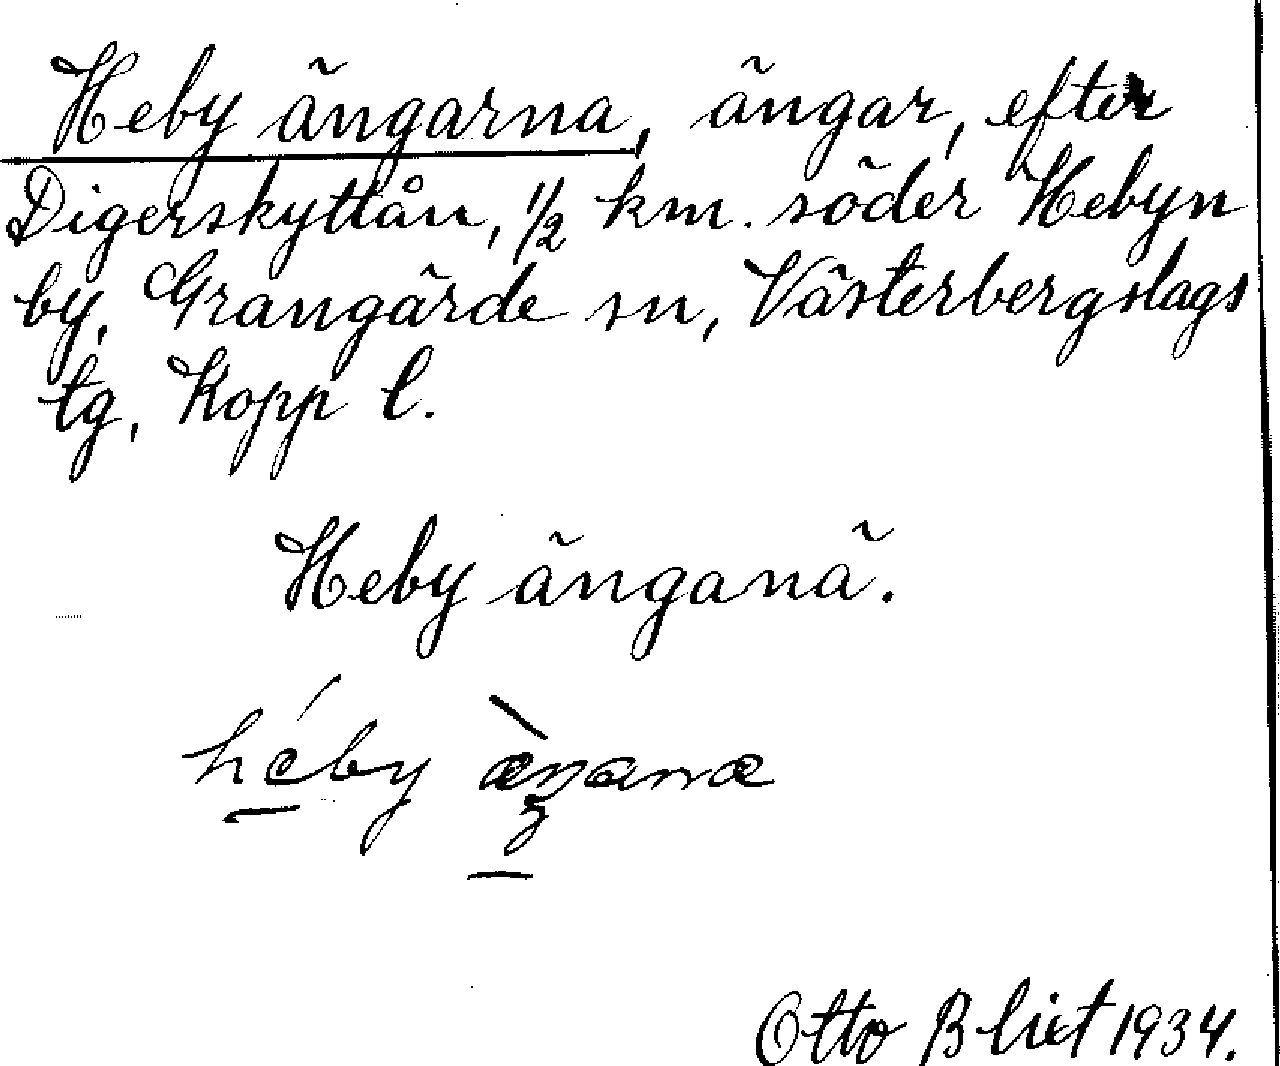 Heby ängarna, ängar, efter
Digerskyttån, 1/2 km. söder Hebyn
by, Grangärde sn, Västerbergslags
tg, Kopp l.
Heby änganä.
héby æ̀ŋanæ
Otto Blixt 1934.